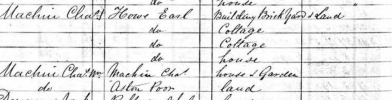 do house
Machin Chas. J Howe Earl Building Brick Yard & Land
do Cottage
do Cottage
do house
Machin Chas. Wm Machin Chas. house & Garden
do Aston Poor land